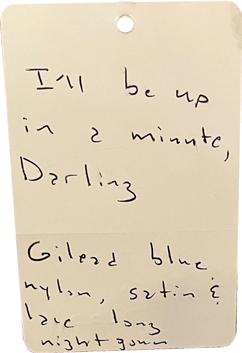 I'll be up
in a minute,
Darling
Gilead blue
nylon, satin &
lace long
nightgown